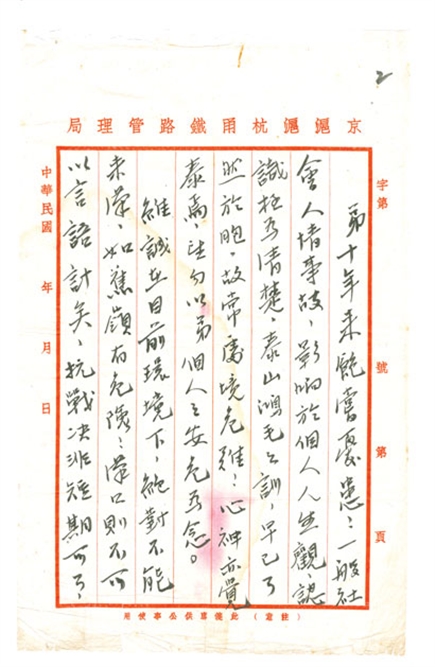 2
京滬滬杭甬鐵路管理局
字第 號第 頁
弟十年來飽嘗憂患：一般社
會人情事故，影响於個人人生觀，認
識極為清楚，泰山鴻毛之訓，早已了
然於胸，故常處境危難：心神亦覺
泰焉，望勿以弟個人之安危為念。
維誠在目前環境下，絕對不能
來漢，如蕉嶺有危險：漢口則不可
以言語計矣，抗戰决非短期可了，
中華民國 年 月 日
（注意）此箋專供公事使用